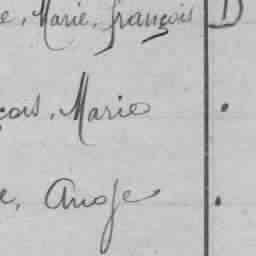 e, Marie, françois D
çois, Marie .
e, Ange .